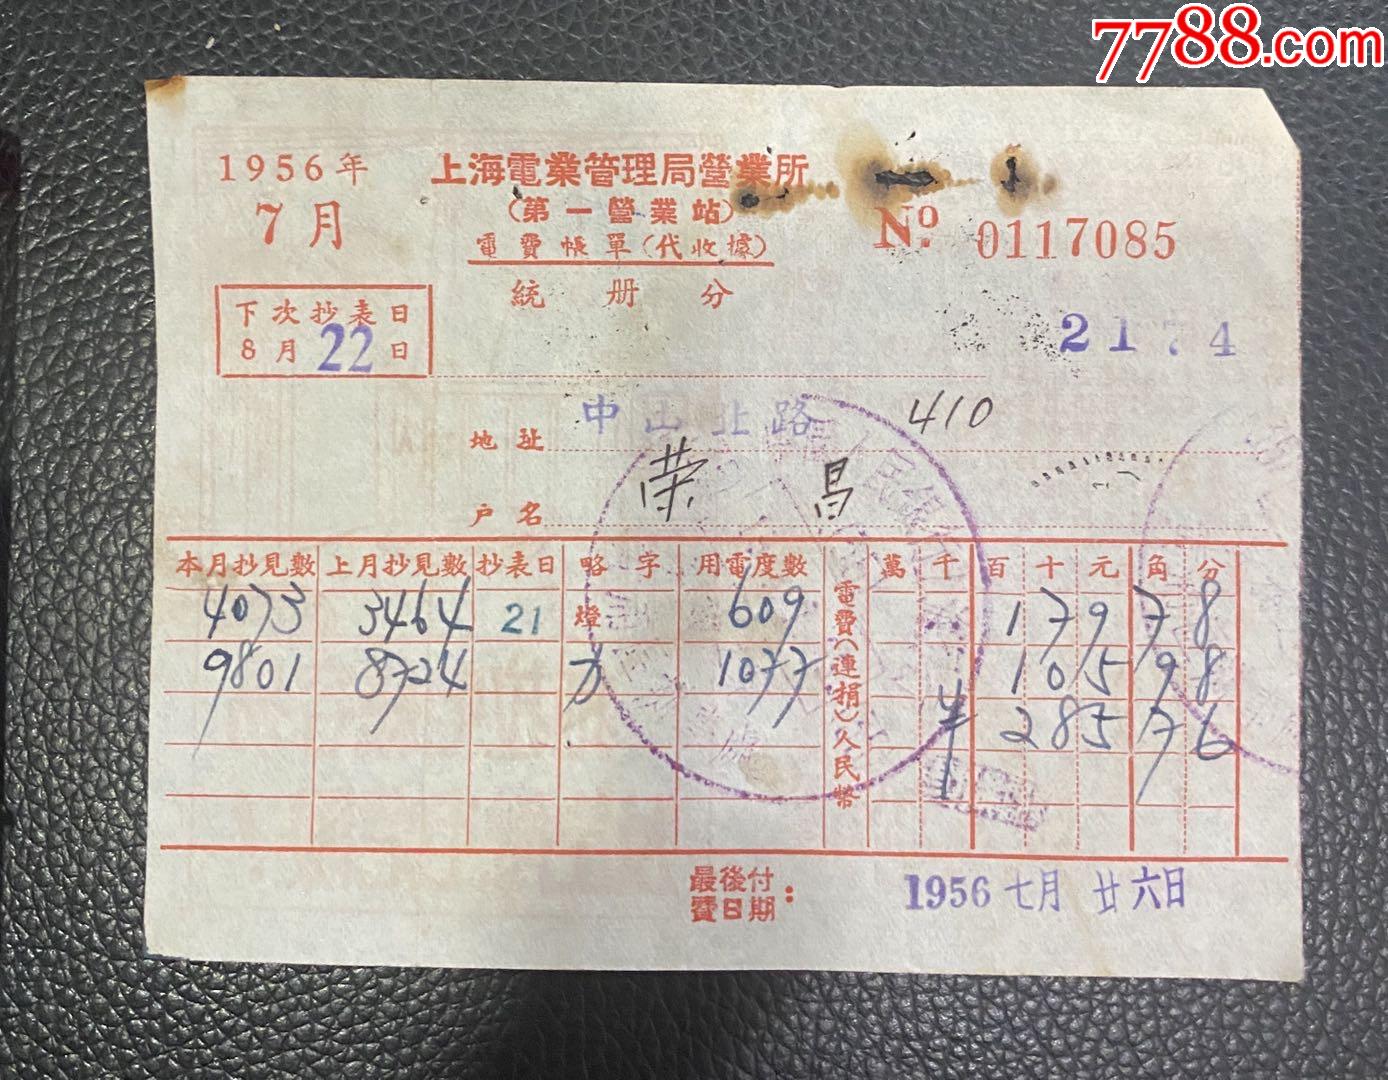 7788.com
1956年
7月
上海電業管理局營業所
(第一營業站)
電費帳單(代收據)
No. 0117085
統 册 分
下次抄表日
8月22日
2174
地址 中山北路 410
户名 荣昌
本月抄見數 上月抄見數 抄表日 略字 用電度數 電費(連捐)人民幣 萬 千 百 十 元 角 分
4073 3464 21 燈 609 179 7 8
9801 8724 力 1077 105 9 8
¥ 285 7 6
最後付費日期: 1956 七月 廿六日